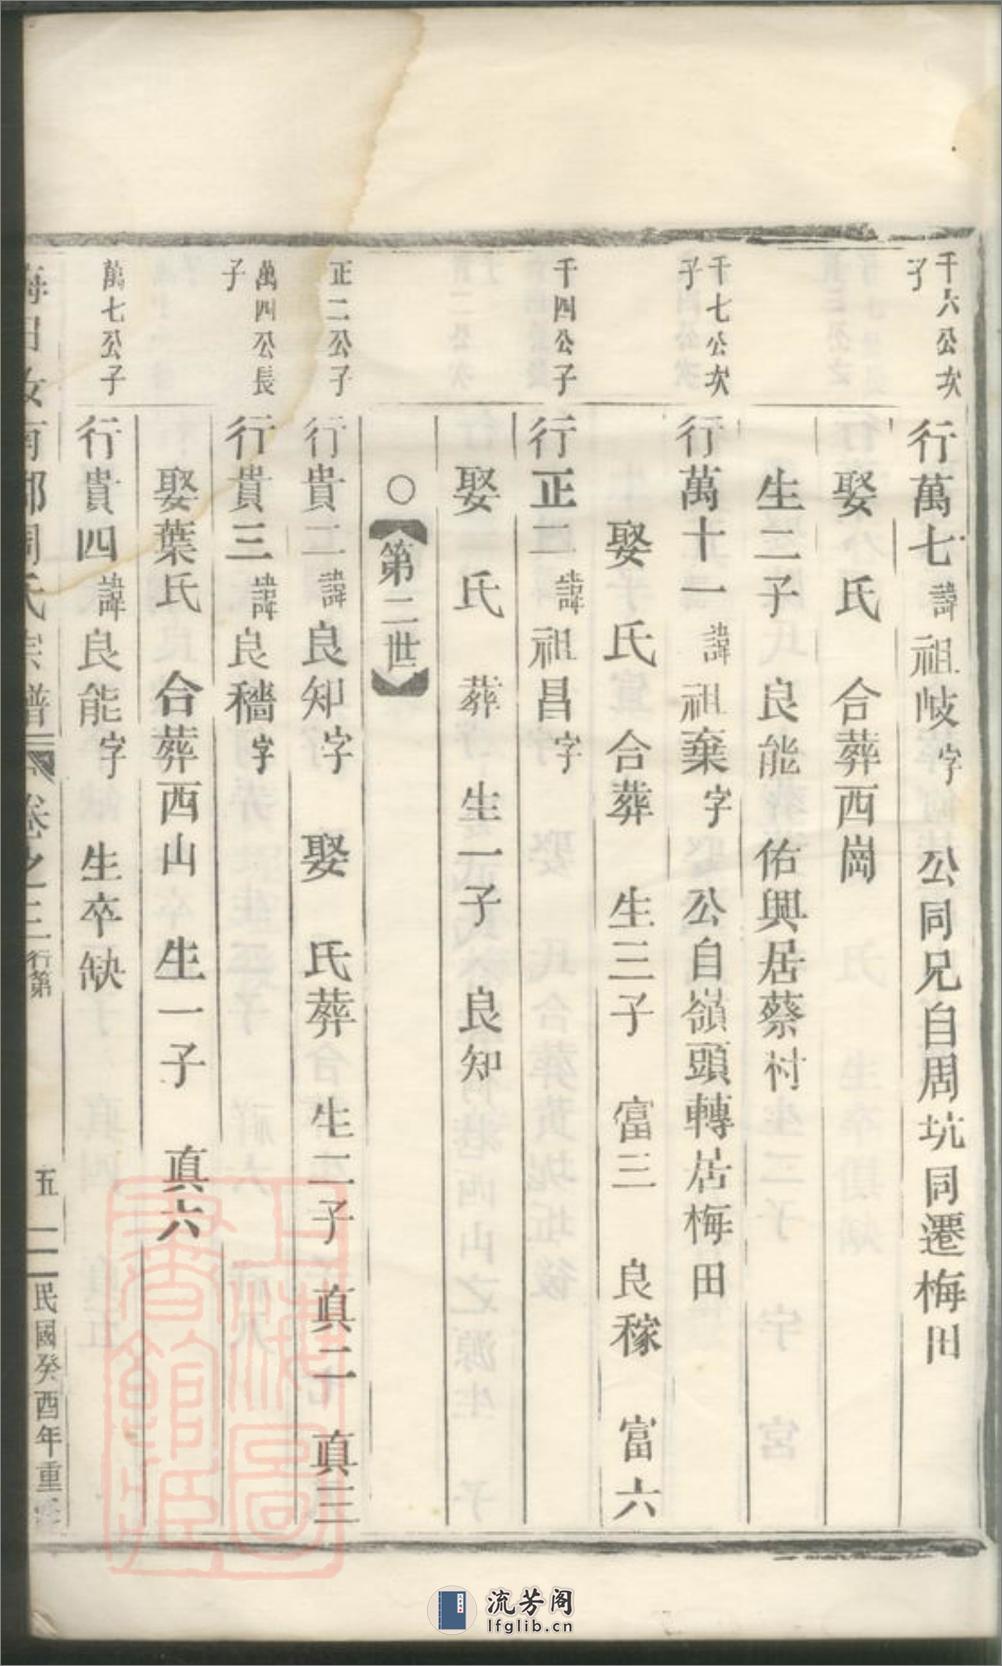 千六公次子
行萬七諱祖岐字 公同兄自周坑同遷梅田
娶 氏 合葬西崗
生二子 良能 佑興居蔡村
千七公次子
行萬十一諱祖棄字 公自嶺頭轉居梅田
娶 氏 合葬 生三子 富三 良稼 富六
千四公子
行正二諱祖昌字
娶 氏 葬 生一子 良知
○第二世
正二公子
行貴二諱良知字 娶 氏葬 生二子 真二 真三
萬四公長子
行貴三諱良穡字
娶葉氏 合葬西山 生一子 真六
萬七公子
行貴四諱良能字 生卒缺
梅田汝南郡周氏宗譜 卷之三 行第 五 民國癸酉年重
上海圖書館藏
流芳阁
lfglib.cn